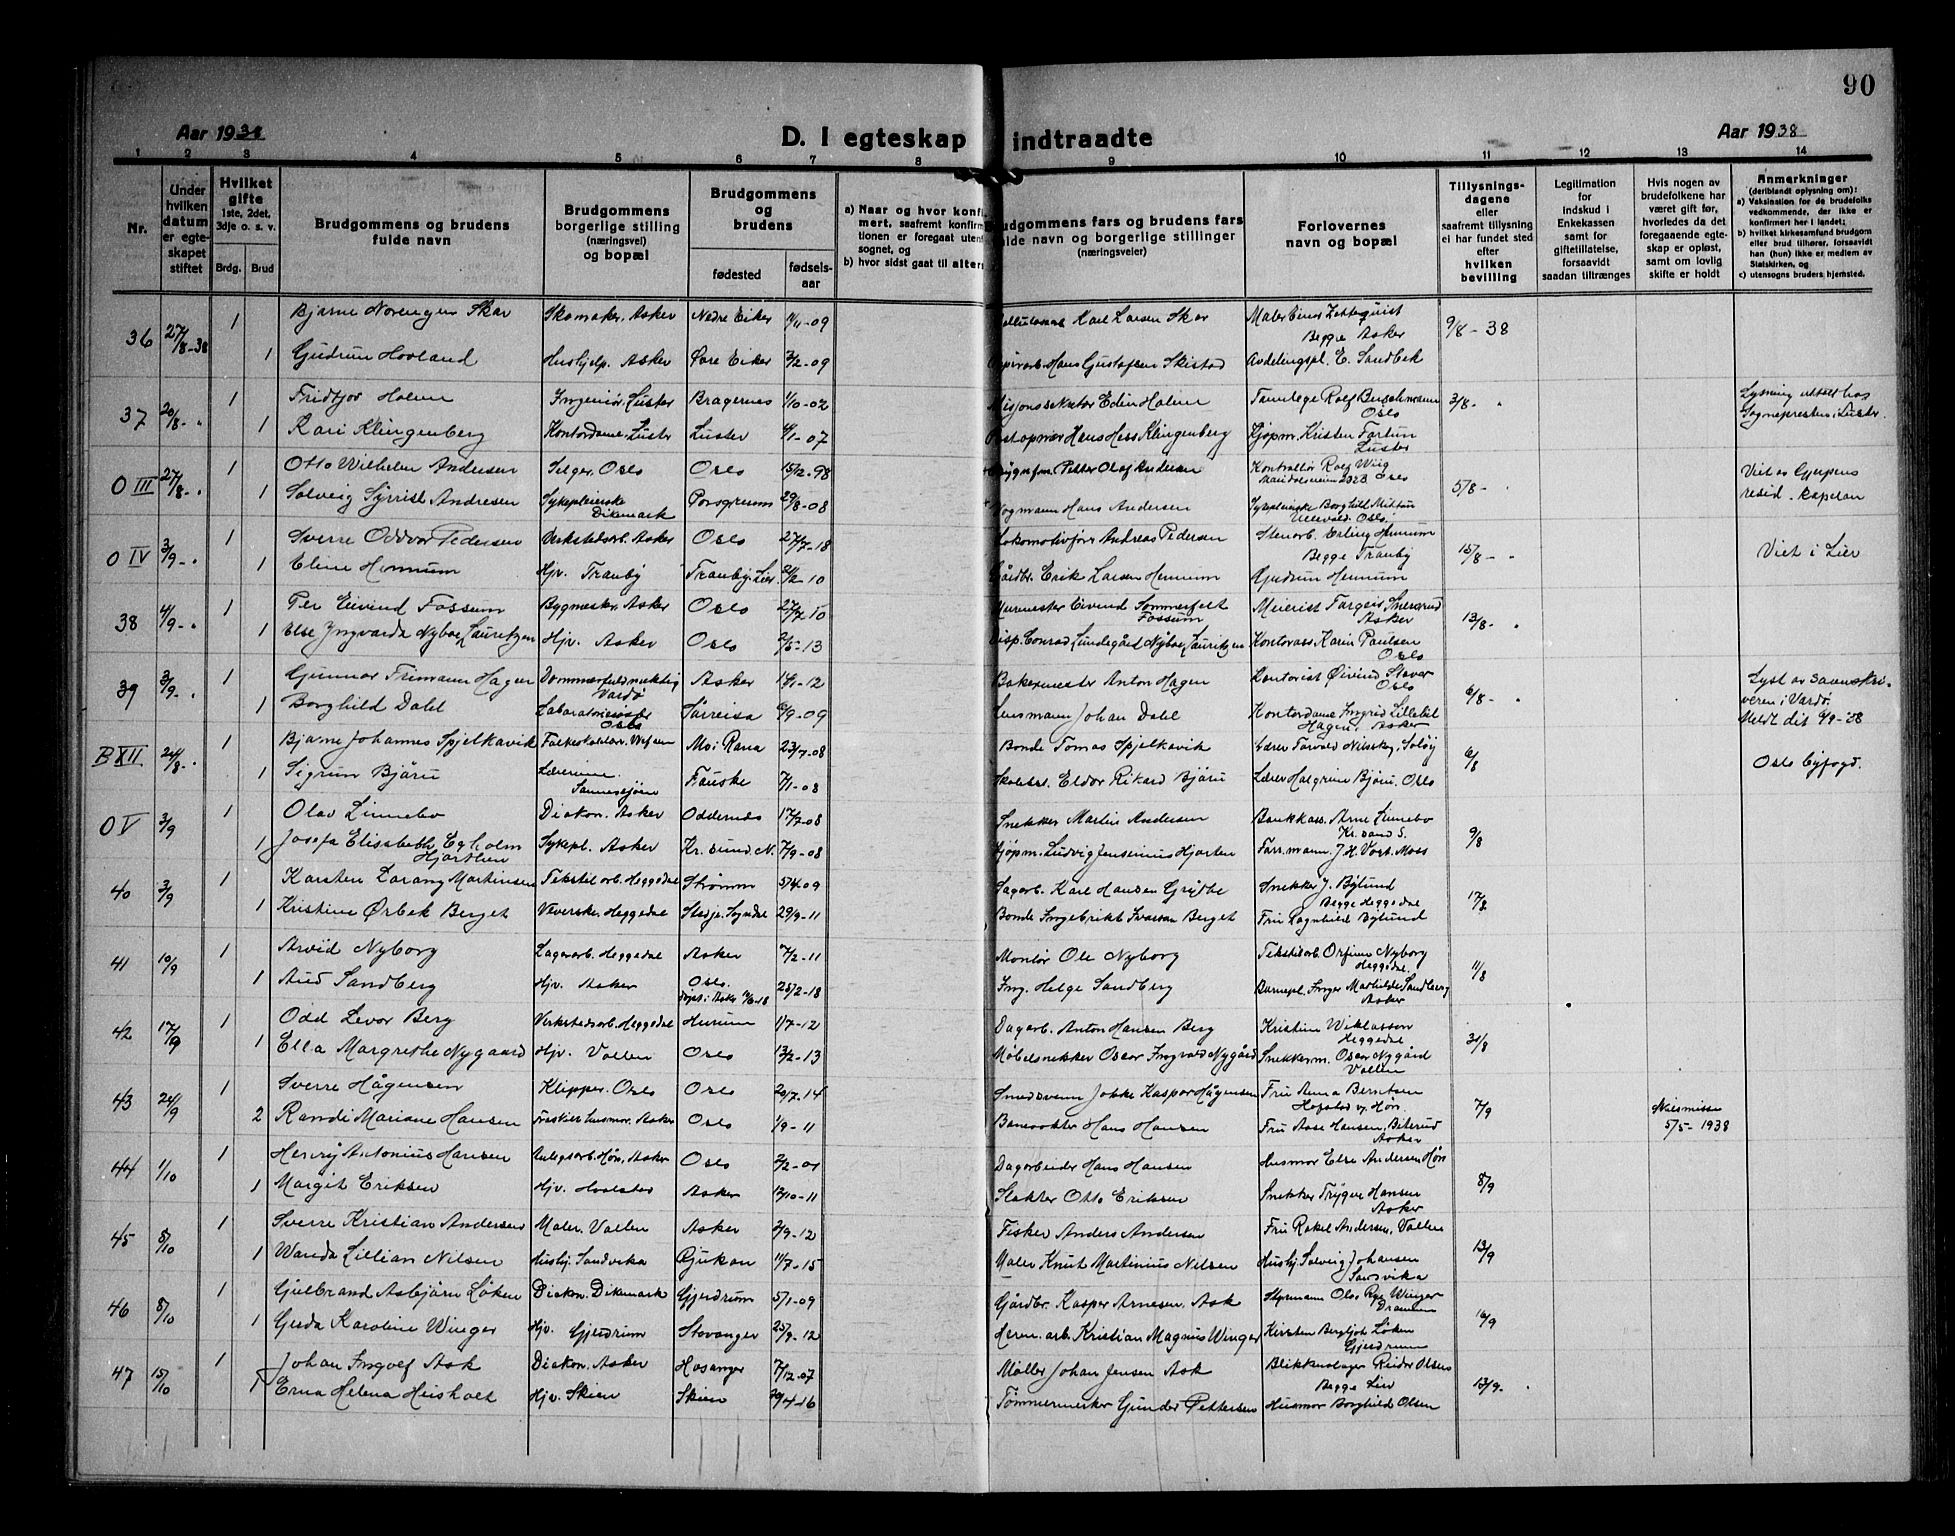 90
Aar 1938
D. I egteskap indtraadte
Aar 1938
1 2 3 4 5 6 7 8 9 10 11 12 13 14
Nr.
Under hvilken datum er egteskapet stiftet
Hvilket gifte
1ste, 2det, 3dje o. s. v.
Brdg. Brud
Brudgommens og brudens fulde navn
Brudgommens borgerlige stilling (næringsvei) og bopæl
Brudgommens og brudens
fødested
fødselsaar
a) Naar og hvor konfirmert, saafremt konfirmationen er foregaat utenfor sognet, og
b) hvor sidst gaat til alters
Brudgommens fars og brudens fars fulde navn og borgerlige stillinger (næringsveier)
Forlovernes navn og bopæl
Tillysningsdagene eller saafremt tillysning ei har fundet sted efter hvilken bevilling
Legitimation for indskud i Enkekassen samt for giftetillatelse, forsaavidt saadan tiltrænges
Hvis nogen av brudefolkene har været gift før, hvorledes da det foregaaende egteskap er opløst, samt om lovlig skifte er holdt
Anmerkninger
(deriblandt oplysning om):
a) Vaksination for de brudefolks vedkommende, der ikke er konfirmert her i landet;
b) hvilket kirkesamfund brudgom eller brud tilhører, forsaavidt han (hun) ikke er medlem av Statskirken, og
c) utensogns bruders hjemsted.
36 27/8-38 1 Bjarne Norengen Skar Skomaker, Asker Nedre Eiker 11-09 Karl Larsen Skar Begge Asker 9/8-38
1 Gudrun Hovland Hushjelp, Asker Øvre Eiker 3/2-09 Hans Gustafsen Skistad Avdelingspl. E. Sandbek
37 20/8 1 Fridtjov Holm Ingeniør, Luster Bragernes 1/10-02 Misjonssekretær Edin Holm Tannlege Rolf Buschmann Oslo 3/8 Lysning uttatt hos Sognepresten i Luster.
1 Kari Klingenberg Kontordame, Luster Luster 4/1-07 Postopner Hans Hess Klingenberg Kjøpm. Kristen Fortun Luster
O III 27/8 1 Otto Wilhelm Andersen Selger, Oslo Oslo 15/2-98 Bygnfm. Petter Olaf Andersen Kontrollør Rolf Wiig Oslo 5/8 Viet av Gjerpens resid. kapelan
1 Solveig Syrrist Andresen Sykepleierske Dikemark Porsgrunn 29/8-08 Vognmann Hans Andersen Sykepleierske Borghild Ullevål, Oslo
O IV 3/9 1 Sverre Oddvar Pedersen Verkstedsarb. Asker Oslo 27/7-18 Lokomotivfører Andreas Pedersen Stenarb. Erling Hennum Begge Tranby 15/8 Viet i Lier
1 Eline Hennum Hjv. Tranby Tranby, Lier 2/2-10 Gårdbr. Erik Larsen Hennum Gudrun Hennum
38 4/9 1 Per Eivind Fossum Bygmester, Asker Oslo 27/7-10 Murmester Eivind Sommerfelt Fossum Meierist Torgeir Asker 13/8
1 Else Yngvarda Nyboe Lauritzen Hjv. Asker Oslo 2/5-13 Disp. Conrad Lundegård Nyboe Lauritzen Kontorass. Karin Paulsen Oslo
39 3/9 1 Gunnar Frimann Hagen Dommerfuldmektig Vardø Asker 14/1-12 Bakermester Anton Hagen Kontorist Øivind Oslo 6/8 Lyst av Sorenskriveren i Vardø. Meldt dit 4/9-38
1 Borghild Dahl Oslo Sørreisa 6/9-09 Lensmann Johan Dahl Kontordame Ingrid Lillebil Hagen, Asker
B XII 24/8 1 Bjarne Johannes Spjelkavik Mo i Rana 23/7-08 Bonde Tomas Spjelkavik Lærer Torvald 6/8 Oslo byfogd.
1 Sigrun Bjøru Lærerinne, Sannessjøen Fauske 7/1-08 Eldor Rikard Bjøru Lærer Halgrim Bjøru, Oslo
O V 3/9 1 Olav Linnebo Diakon, Asker Oddernes 17/7-08 Snekker Martin Andersen Bankkass. Arne Linnebo Kr. sand S. 9/8
1 Josefa Elisabeth Egholm Hjorthen Sykepl. Asker Kr. sund. N. 7/9-08 Kjøpm. Ludvig Jensenius Hjorten Forr.mann J. H. Vort, Moss
40 3/9 1 Karsten Lorang Martinsen Tekstilarb. Heggedal Strømm 5/4-09 Sagarb. Karl Hansen Gryte Snekker J. Bylund Begge Heggedal 17/8
1 Kristine Ørbek Berget Veverske, Heggedal Stedje, Sogndal 29/9-11 Bonde Ingebrikt Ivarson Berget Fru Ragnhild Bylund
41 10/9 1 Arvid Nyborg Lagerarb. Heggedal Asker 7/2-11 Montør Ole Nyborg Tekstilarb. Orfinn Nyborg Heggedal. 11/8
1 Aud Sandberg Hjv. Asker Oslo. døpt i Asker 25/2-18 Ing. Helge Sandberg Barnepl. Inger Mathilde Sandberg Asker
42 17/9 1 Odd Levor Berg Verkstedsarb. Heggedal Hurum 1/7-12 Dagarb. Anton Hansen Berg Kristine Wiklasson Heggedal 31/8
1 Ella Margrethe Nygaard Hjv. Vollen Oslo 13/2-13 Møbelsnekker Oscar Ingvald Nygård Snekkerm. Oscar Nygård Vollen
43 24/9 1 Sverre Hågensen Klipper, Oslo Oslo 20/7-14 Smedsvenn Kaspar Hågensen Fru Anna Berntsen Hofstad pr. Høn. 7/9
2 Randi Mariane Hansen Asker Oslo 1/9-11 Banevokter Hans Hansen Fru Aase Hansen, Bilerud Asker Skilsmisse 5/5-1938
44 1/10 1 Henry Antonius Hansen Anlegsarb. Høn, Asker Oslo 2/2-01 Dagarbeider Hans Hansen Husmor Else Andersen Høn 8/9
1 Margit Eriksen Hjv. Hvalstad Asker 13/10-11 Slakter Otto Eriksen Snekker Trygve Hansen Asker
45 8/10 1 Sverre Kristian Andersen Maler, Vollen Asker 2/9-12 Fisker Anders Andersen Fru Rakel Andersen, Vollen 13/9
1 Wanda Lillian Nilsen Hushj. Sandvika Rjukan 11/7-15 Maler Knut Martinius Nilsen Hushj. Solveig Johansen Sandvika
46 8/10 1 Gulbrand Asbjørn Løken Diakon, Dikemark Gjerdrum 5/1-09 Gårdbr. Kasper Arnesen Ask Styrmann Olav Rye Winger Drammen 16/9
1 Gerda Karoline Winger Hjv. Gjerdrum Stavanger 25/9-12 Herm. arb. Kristian Magnus Winger Kirsten Bergljot Løken Gjerdrum
47 15/10 1 Johan Ingolf Ask Diakon, Asker Hosanger 7/12-07 Møller Johan Jensen Ask Blikkenslager Reidar Olsen Begge Lier 13/9
1 Erna Helena Husholt Hjv. Skien Skien 29/4-16 Tømmermerker Gunder Pettersen Husmor Borghild Olsen